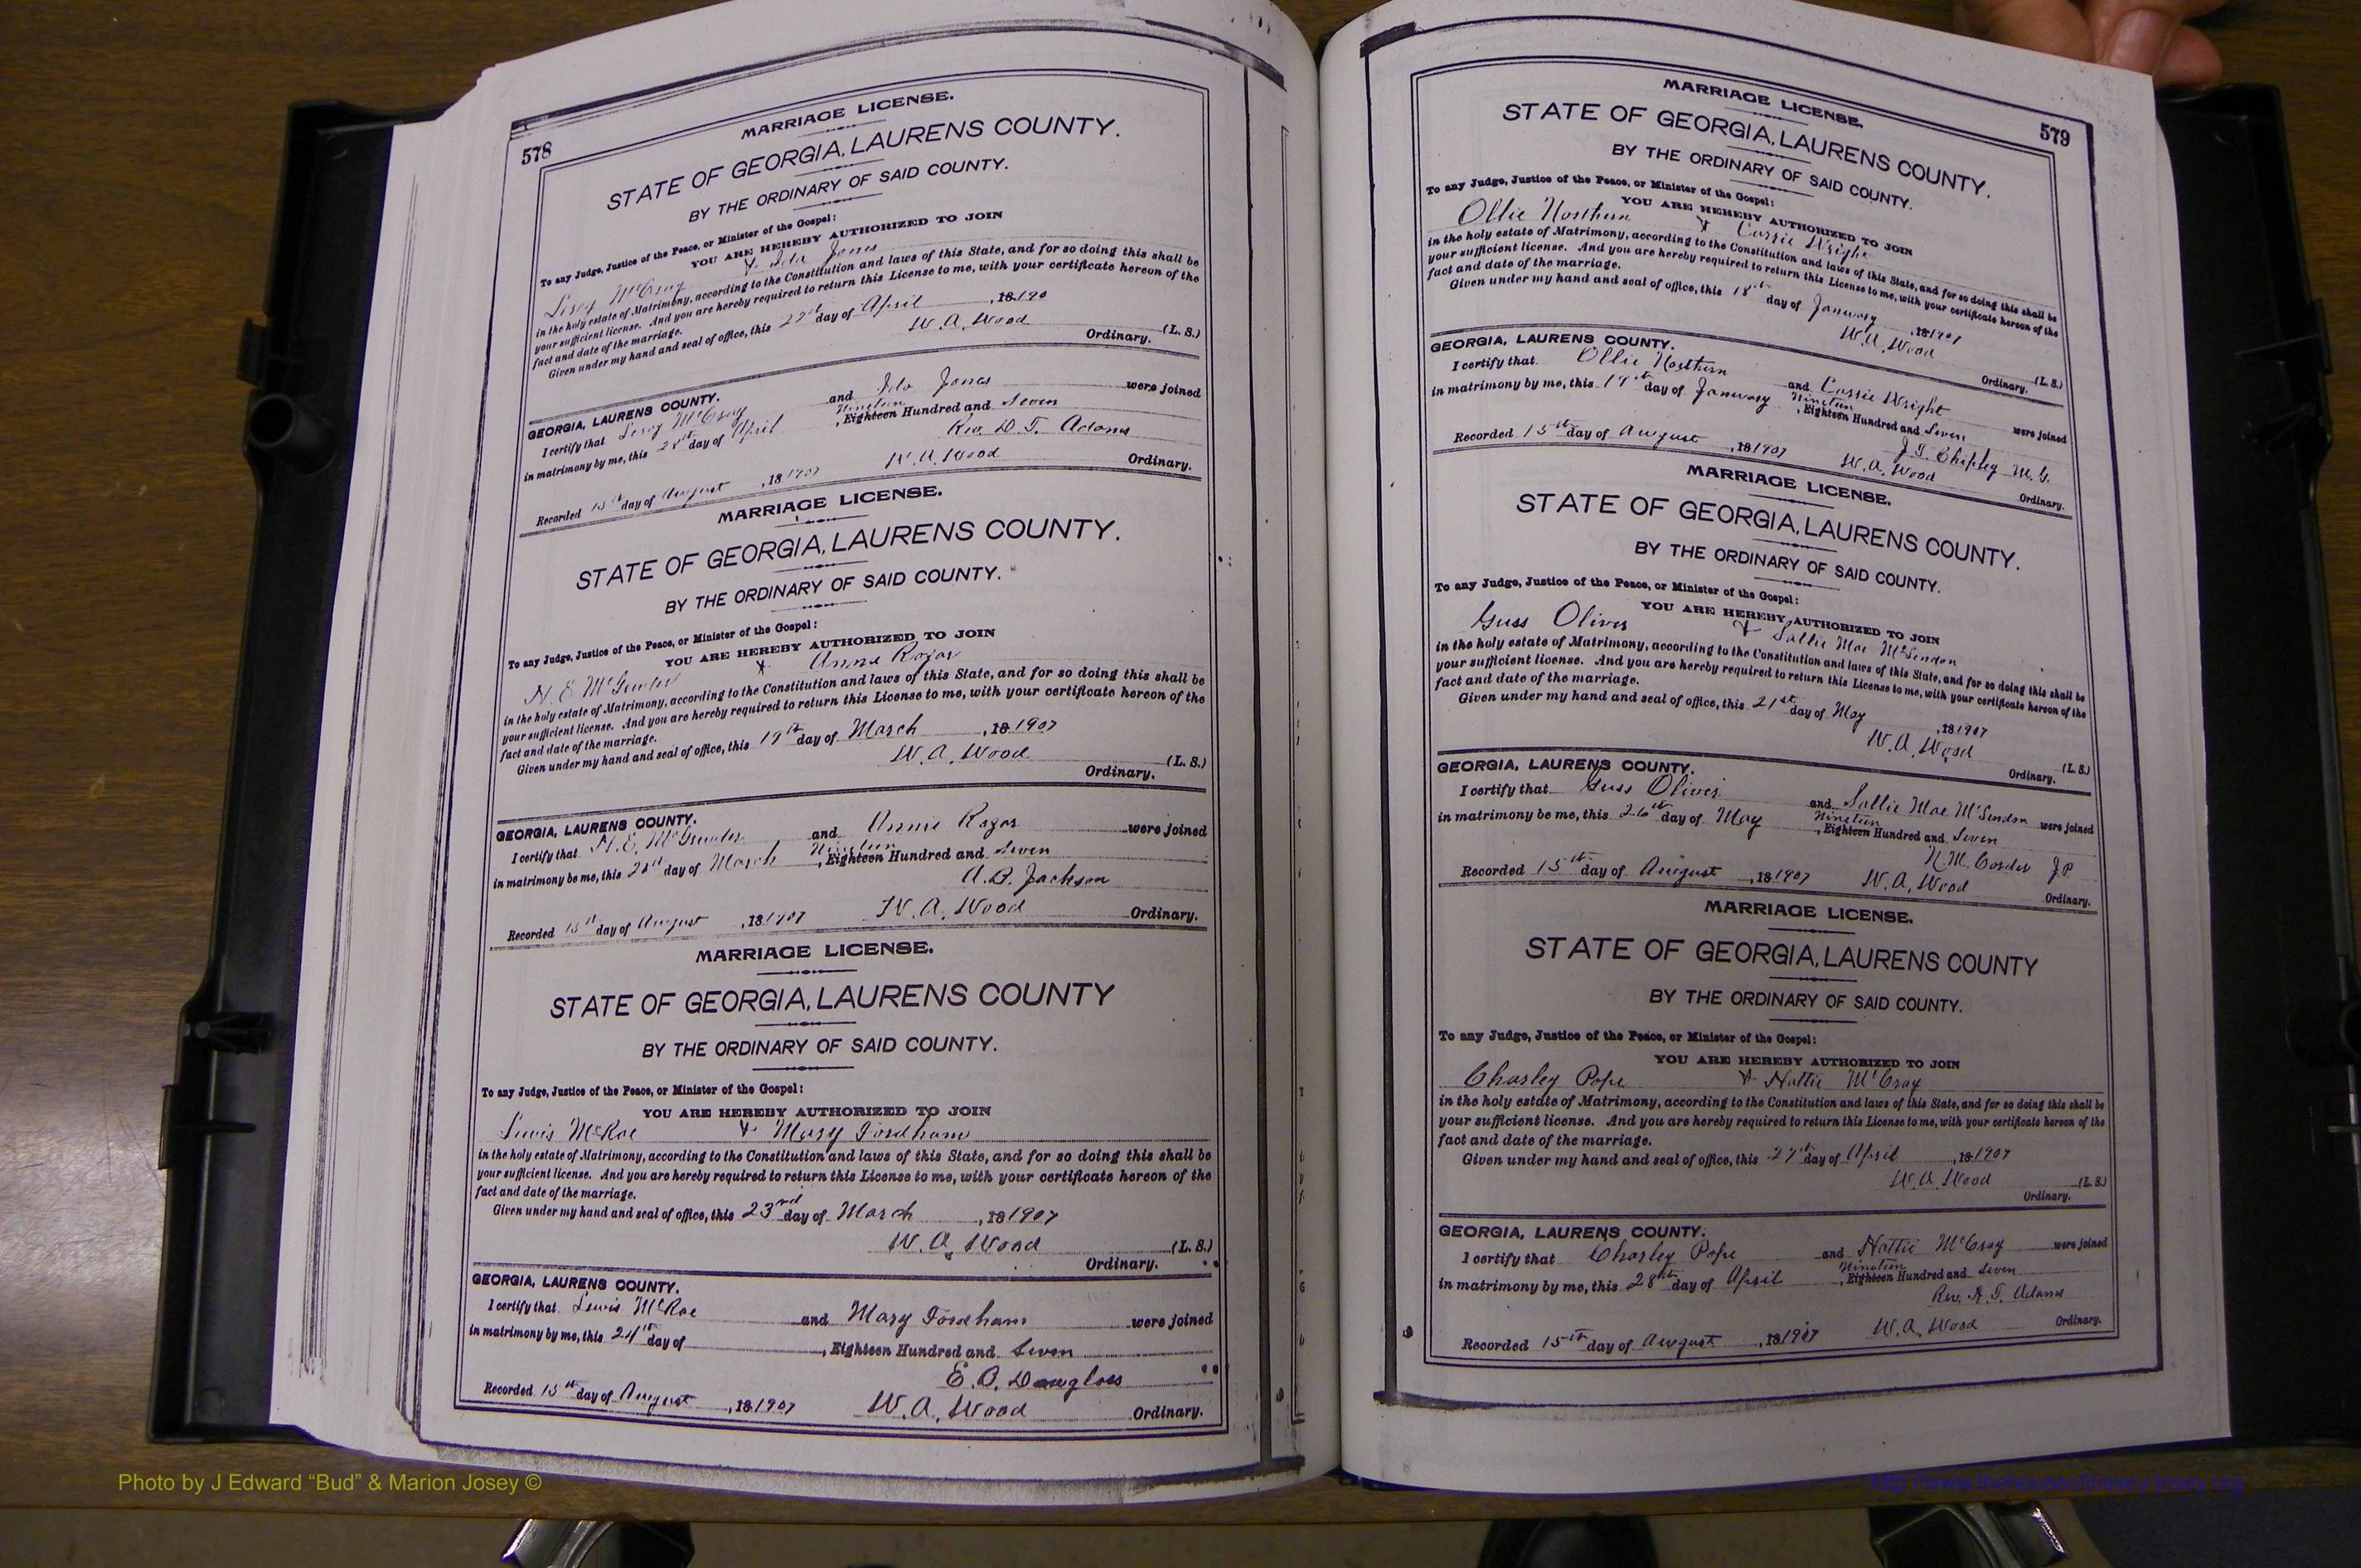 578
MARRIAGE LICENSE.
STATE OF GEORGIA, LAURENS COUNTY.
BY THE ORDINARY OF SAID COUNTY.
To any Judge, Justice of the Peace, or Minister of the Gospel:
YOU ARE HEREBY AUTHORIZED TO JOIN
McCray & Ida Jones
in the holy estate of Matrimony, according to the Constitution and laws of this State, and for so doing this shall be
your sufficient license. And you are hereby required to return this License to me, with your certificate hereon of the
fact and date of the marriage.
Given under my hand and seal of office, this 27th day of April, 18190
W. A. Wood (L. S.)
Ordinary.
GEORGIA, LAURENS COUNTY.
I certify that McCray and Ida Jones were joined
Nineteen
in matrimony by me, this 28th day of April, Eighteen Hundred and Seven
Rev. D. T. Adams
Recorded 15th day of August, 181907 W. A. Wood Ordinary.
MARRIAGE LICENSE.
STATE OF GEORGIA, LAURENS COUNTY.
BY THE ORDINARY OF SAID COUNTY.
To any Judge, Justice of the Peace, or Minister of the Gospel:
YOU ARE HEREBY AUTHORIZED TO JOIN
& Annie
in the holy estate of Matrimony, according to the Constitution and laws of this State, and for so doing this shall be
your sufficient license. And you are hereby required to return this License to me, with your certificate hereon of the
fact and date of the marriage.
Given under my hand and seal of office, this 19th day of March, 181907
W. A. Wood (L. S.)
Ordinary.
GEORGIA, LAURENS COUNTY.
I certify that and Annie were joined
Nineteen
in matrimony be me, this day of March, Eighteen Hundred and Seven
A. B. Jackson
Recorded 15th day of August, 181907 W. A. Wood Ordinary.
MARRIAGE LICENSE.
STATE OF GEORGIA, LAURENS COUNTY
BY THE ORDINARY OF SAID COUNTY.
To any Judge, Justice of the Peace, or Minister of the Gospel:
YOU ARE HEREBY AUTHORIZED TO JOIN
Lewis McRae & Mary Fordham
in the holy estate of Matrimony, according to the Constitution and laws of this State, and for so doing this shall be
your sufficient license. And you are hereby required to return this License to me, with your certificate hereon of the
fact and date of the marriage.
Given under my hand and seal of office, this 23rd day of March, 181907
W. A. Wood (L. S.)
Ordinary.
GEORGIA, LAURENS COUNTY.
I certify that Lewis McRae and Mary Fordham were joined
in matrimony by me, this 24th day of , Eighteen Hundred and Seven
E. B. Douglass
Recorded 15th day of August, 181907 W. A. Wood Ordinary.
579
MARRIAGE LICENSE.
STATE OF GEORGIA, LAURENS COUNTY.
BY THE ORDINARY OF SAID COUNTY.
To any Judge, Justice of the Peace, or Minister of the Gospel:
YOU ARE HEREBY AUTHORIZED TO JOIN
Ollie Northern & Cassie Wright
in the holy estate of Matrimony, according to the Constitution and laws of this State, and for so doing this shall be
your sufficient license. And you are hereby required to return this License to me, with your certificate hereon of the
fact and date of the marriage.
Given under my hand and seal of office, this 18th day of January, 181907
W. A. Wood (L. S.)
Ordinary.
GEORGIA, LAURENS COUNTY.
I certify that Ollie Northern and Cassie Wright were joined
Nineteen
in matrimony by me, this 19th day of January, Eighteen Hundred and Seven
J. T. Chipley M. G.
Recorded 15th day of August, 181907 W. A. Wood Ordinary.
MARRIAGE LICENSE.
STATE OF GEORGIA, LAURENS COUNTY.
BY THE ORDINARY OF SAID COUNTY.
To any Judge, Justice of the Peace, or Minister of the Gospel:
YOU ARE HEREBY AUTHORIZED TO JOIN
Guss Oliver & Sallie Mae McLendon
in the holy estate of Matrimony, according to the Constitution and laws of this State, and for so doing this shall be
your sufficient license. And you are hereby required to return this License to me, with your certificate hereon of the
fact and date of the marriage.
Given under my hand and seal of office, this 21st day of May, 181907
W. A. Wood (L. S.)
Ordinary.
GEORGIA, LAURENS COUNTY.
I certify that Guss Oliver and Sallie Mae McLendon were joined
Nineteen
in matrimony be me, this 26th day of May, Eighteen Hundred and Seven
J.P.
Recorded 15th day of August, 181907 W. A. Wood Ordinary.
MARRIAGE LICENSE.
STATE OF GEORGIA, LAURENS COUNTY
BY THE ORDINARY OF SAID COUNTY.
To any Judge, Justice of the Peace, or Minister of the Gospel:
YOU ARE HEREBY AUTHORIZED TO JOIN
Charley Pope & Hattie McCray
in the holy estate of Matrimony, according to the Constitution and laws of this State, and for so doing this shall be
your sufficient license. And you are hereby required to return this License to me, with your certificate hereon of the
fact and date of the marriage.
Given under my hand and seal of office, this 27th day of April, 181907
W. A. Wood (L. S.)
Ordinary.
GEORGIA, LAURENS COUNTY.
I certify that Charley Pope and Hattie McCray were joined
Nineteen
in matrimony by me, this 28th day of April, Eighteen Hundred and Seven
Rev. Adams
Recorded 15th day of August, 181907 W. A. Wood Ordinary.
Photo by J Edward “Bud” & Marion Josey ©